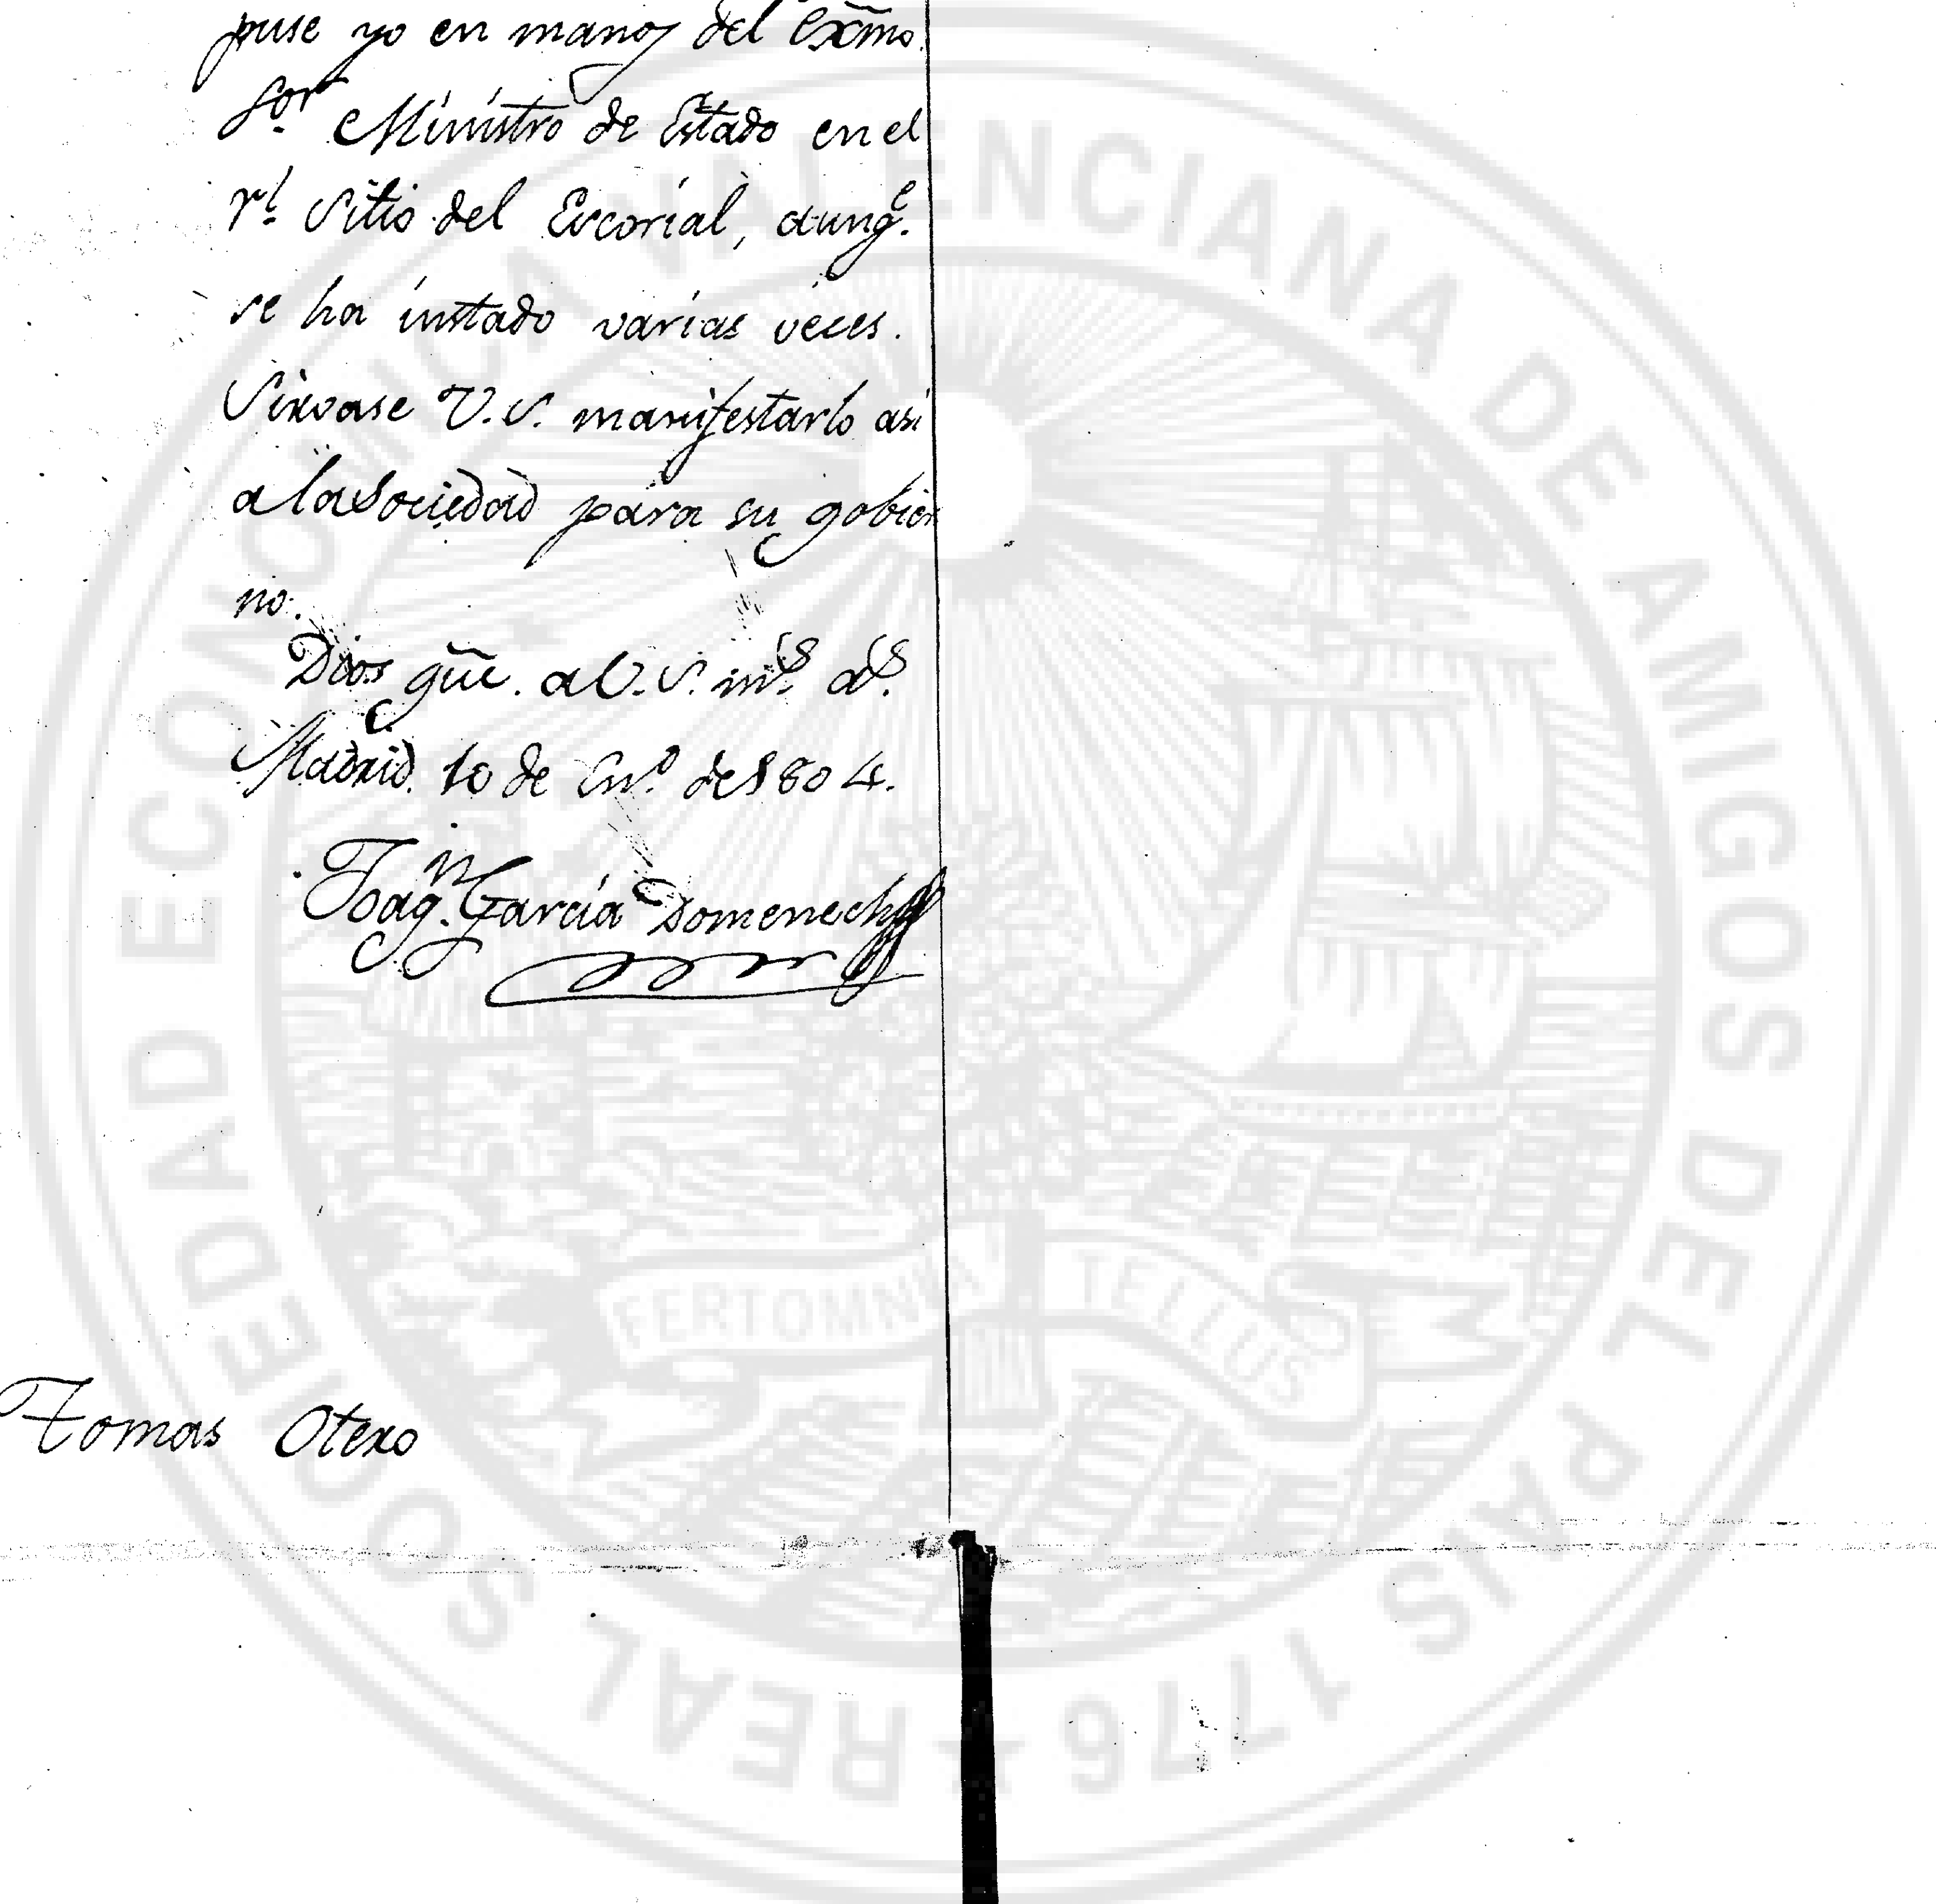 puse yo en manos del Exc̃mo.
Sor. Ministro de Estado en el
rl. Sitio del Escorial, aunq.e
se ha instado varias veces.
Sirvase V.S. manifestarlo asi
a la Sociedad para su gobier
no.
Dios gũe. a V.S. ms. as.
Madrid. 10 de En.o de 1804.
Joaq.n García Domenech
Tomas Otero
REAL SOCIEDAD ECONOMICA VALENCIANA DE AMIGOS DEL PAIS 1776
FERT OMNIA TELLUS